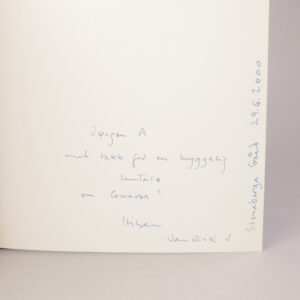 Jørgen A
med takk for en hyggelig
samtale
om Gunvor!
Hilsen
Jan Erik V.
29.6.2000